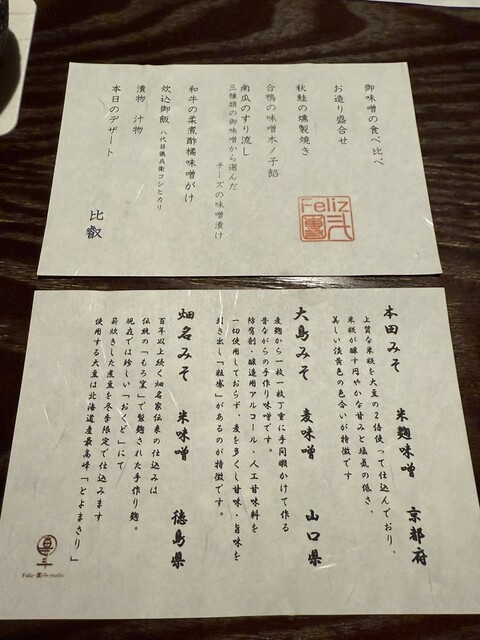 御味噌の食べ比べ
お造り盛合せ
秋鮭の燻製焼き
合鴨の味噌木ノ子餡
南瓜のすり流し
三種類の御味噌から選んだ
チーズの味噌漬け
和牛の柔煮酢橘味噌がけ
炊込御飯 八代目儀兵衛コシヒカリ
漬物 汁物
本日のデザート
比叡
Feliz
本田みそ 米麹味噌 京都府
上質な米糀を大豆の2倍使って仕込んでおり、
米糀が醸す円やかな甘みと塩気の低さ、
美しい淡黄色の色合いが特徴です
大島みそ 麦味噌 山口県
麦麹から一枚一枚丁重に手間暇かけて作る
昔ながらの手作り味噌です。
防腐剤・醸造用アルコール・人工甘味料を
一切使用しておらず、麦を多くし甘味・旨味を
引き出し「粒感」があるのが特徴です。
畑名みそ 米味噌 徳島県
百年以上続く畑名家伝来の仕込みは
伝統の「もろ室」で製麹された手作り麹。
現在では珍しい「おくど」にて
薪炊きした煮豆を冬季限定で仕込みます
使用する大豆は北海道産最高峰「とよまさり」